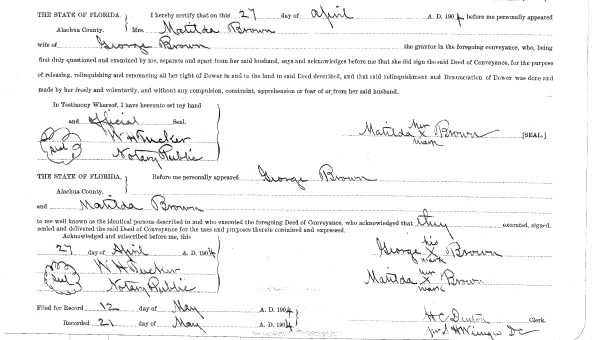 THE STATE OF FLORIDA. } I hereby certify that on this 27 day of April A. D. 1904 before me personally appeared
Alachua County. Mrs. Matilda Brown
wife of George Brown the grantor in the foregoing conveyance, who, being
first duly questioned and examined by me, separate and apart from her said husband, says and acknowledges before me that she did sign the said Deed of Conveyance, for the purpose
of releasing, relinquishing and renouncing all her right of Dower in and to the land in said Deed described, and that said relinquishment and Renunciation of Dower was done and
made by her freely and voluntarily, and without any compulsion, constraint, apprehension or fear of or from her said husband.
In Testimony Whereof, I have hereunto set my hand
and official Seal.
her
Matilda X Brown [SEAL.]
mark
W H Tucker
Seal
Notary Public
THE STATE OF FLORIDA. } Before me personally appeared George Brown
Alachua County.
and Matilda Brown
to me well known as the identical persons described in and who executed the foregoing Deed of Conveyance, who acknowledged that they executed, signed,
sealed and delivered the said Deed of Conveyance for the uses and purposes therein contained and expressed.
Acknowledged and subscribed before me, this
27 day of April A. D. 1904
his
George X Brown
mark
W H Tucker
Seal
Notary Public
her
Matilda X Brown
mark
Filed for Record 12 day of May A. D. 1904
H C Denton Clerk.
Recorded 21 day of May A. D. 1904
per S H Wienges D C